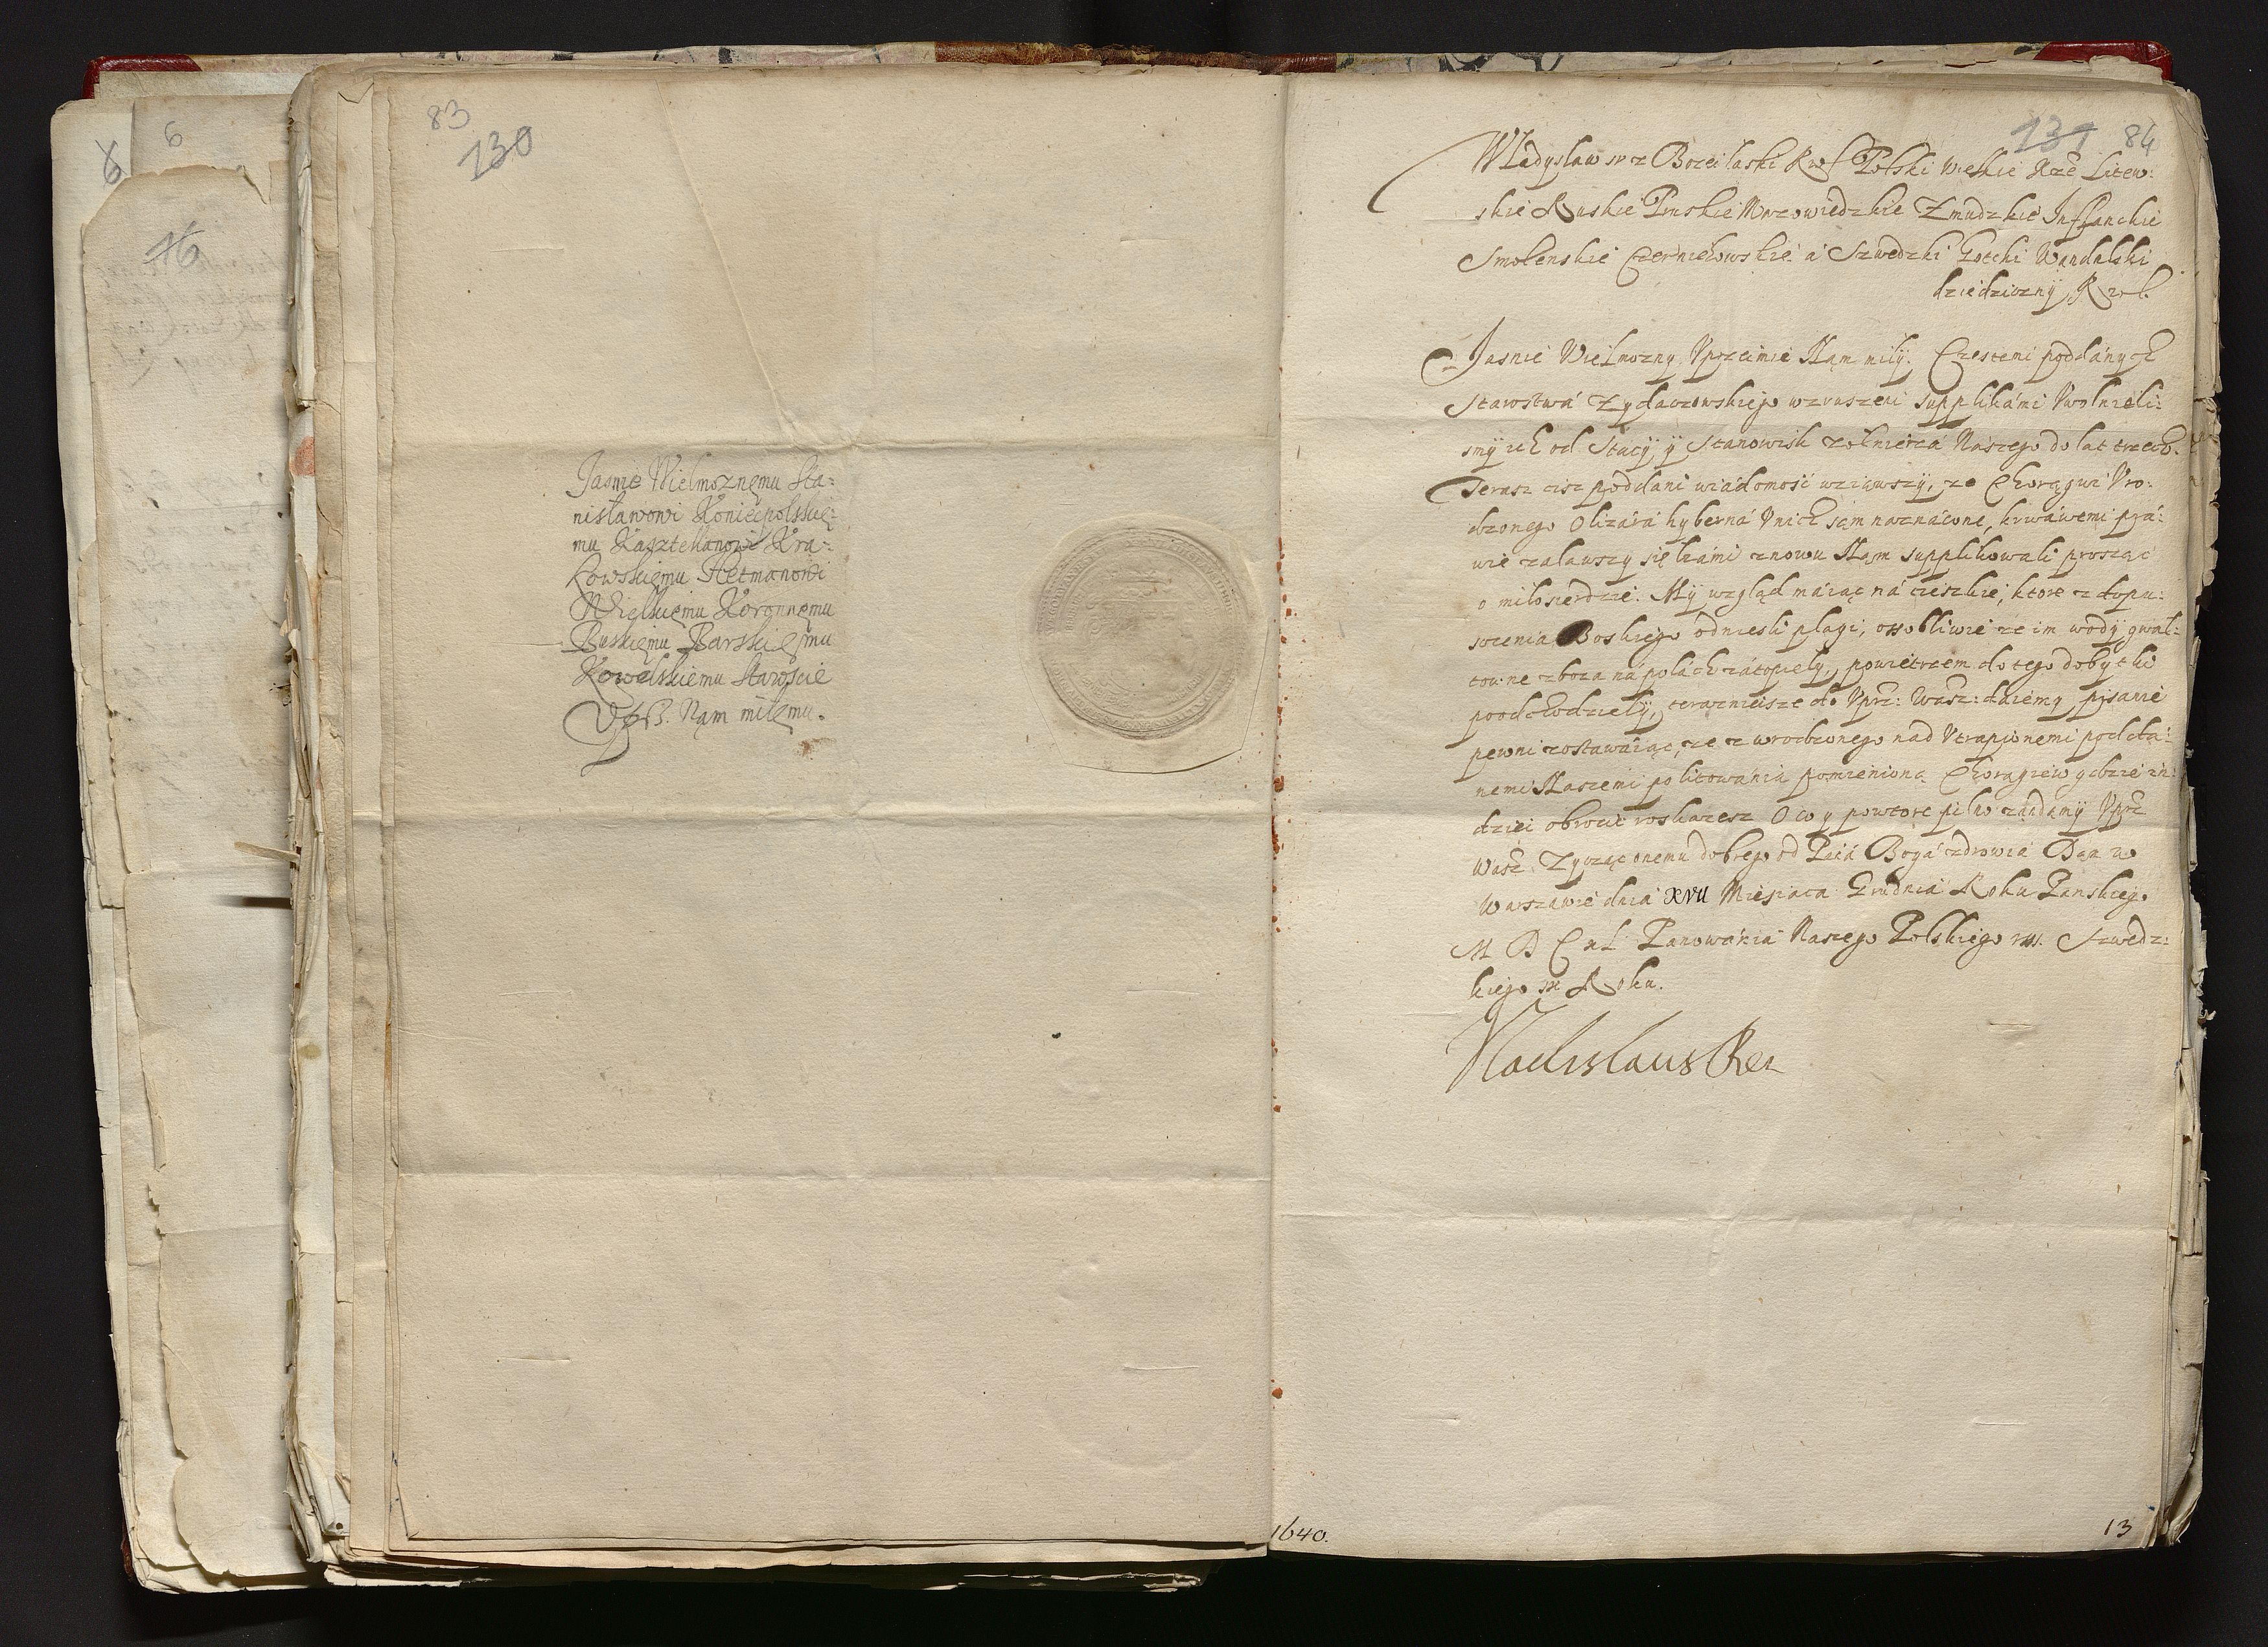 83
130
6
6
16
Jaśnie Wielmożnemu Sta:
nisławowi Koniecpolskie:
mu Kasztellanowi Kra:
kowskiemu Hetmanowi
Wielkiemu Koronnemu
Buskiemu Barskiemu
Kowelskiemu Staroscie
Nam miłemu.
131 84
Władysław IV z Bozei łaski Krol Polski Wielkie Xże Litew:
skie Ruskie Pruskie Mazowiedzkie Zmudzkie Inflanckie
Smolenskie Czerniechowskie a Szwedzki Gotchi Wandalski
dziedziczny Krol.
Jasnie Wielmozny Vprzeimie Nam miły. Czestemi poddánych
Starostwá Zydaczowskiego wzruszeni supplikámi Vwolnieli:
smy ich od Stacÿ y Stanowisk zołnierza Naszego do lat trzech.
Terasz cisz poddani wiádomość wziąwszÿ, ze Chorągwi Vro:
dzonego Olizárá hyberná Vnich sąm naznácone, krwáwemi prá:
wie zalawszy się łzámi znowu Nąm supplikowali prosząc
o miłosierdzie. Mÿ wzgląd máiąc ná cieszkie, ktore z dopu:
scenia Boskiego odniesli plagi, ossobliwie ze im wodÿ gwał:
towne zboza ná poláchzátopiely, powietrzem do tego dobytki
poodchodziely, terazniejsze do Vprz: Wasz: dáiemy pisanie
pewni zostawáiąc, ze z wrodzonego nad Vtrapionemi poddá:
nemi Naszemi politowánia pomieniona Chorągiew gdzie in:
dziei obrocić roskazesz O co y powtore pilno ządamÿ Vprz
Wasz. Zycząc onemu dobrego od Páná Bogá zdrowia Dan w
Warszawie dnia XVII Miesiaca Grudnia Roku Panskiego
M D C XL Panowánia Naszego Polskiego VIII. Szwedz:
kiego IX Roku.
Vladislaus Rex
1640.
13